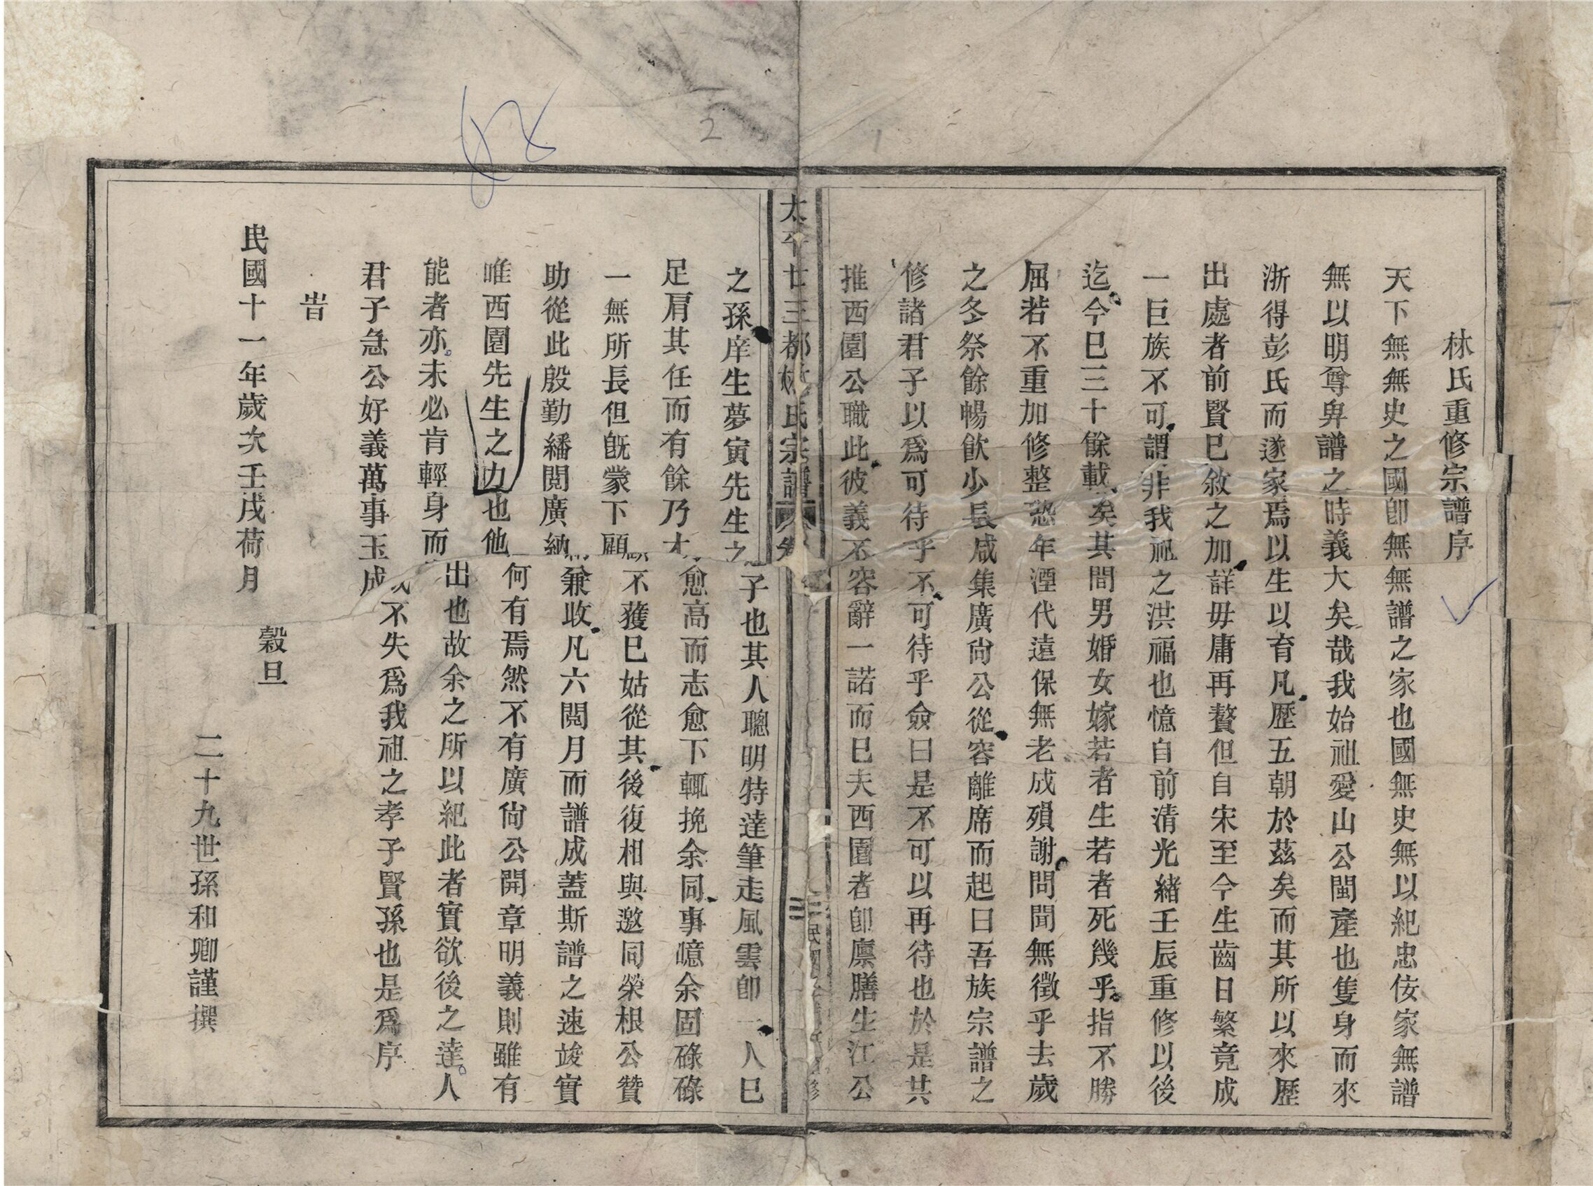 林氏重修宗譜序
天下無無史之國卽無無譜之家也國無史無以紀忠侫家無譜
無以明尊卑譜之時義大矣哉我始祖愛山公閩產也隻身而來
浙得彭氏而遂家焉以生以育凡歷五朝於茲矣而其所以來歷
出處者前賢已敘之加詳毋庸再贅但自宋至今生齒日繁竟成
一巨族不可謂非我祖之洪福也憶自前清光緒壬辰重修以後
迄今已三十餘載矣其間男婚女嫁若者生若者死幾乎指不勝
屈若不重加修整恐年湮代遠保無老成殞謝問聞無徵乎去歲
之冬祭餘暢飲少長咸集廣尙公從容離席而起曰吾族宗譜之
修諸君子以爲可待乎不可待乎僉曰是不可以再待也於是共
推西園公職此彼義不容辭一諾而已夫西園者卽廩膳生江公
太平廿三都林氏宗譜 卷
三 民國
之孫庠生夢寅先生之子也其人聰明特達筆走風雲卽一人已
足肩其任而有餘乃才愈高而志愈下輒挽余同事噫余固碌碌
一無所長但旣蒙下顧不獲已姑從其後復相與邀同榮根公贊
助從此殷勤繙閱廣納兼收凡六閱月而譜成蓋斯譜之速竣實
唯西園先生之力也他何有焉然不有廣尙公開章明義則雖有
能者亦未必肯輕身而出也故余之所以紀此者實欲後之達人
君子急公好義萬事玉成不失爲我祖之孝子賢孫也是爲序
旹
民國十一年歲次壬戌荷月 穀旦
二十九世孫和卿謹撰
68
2